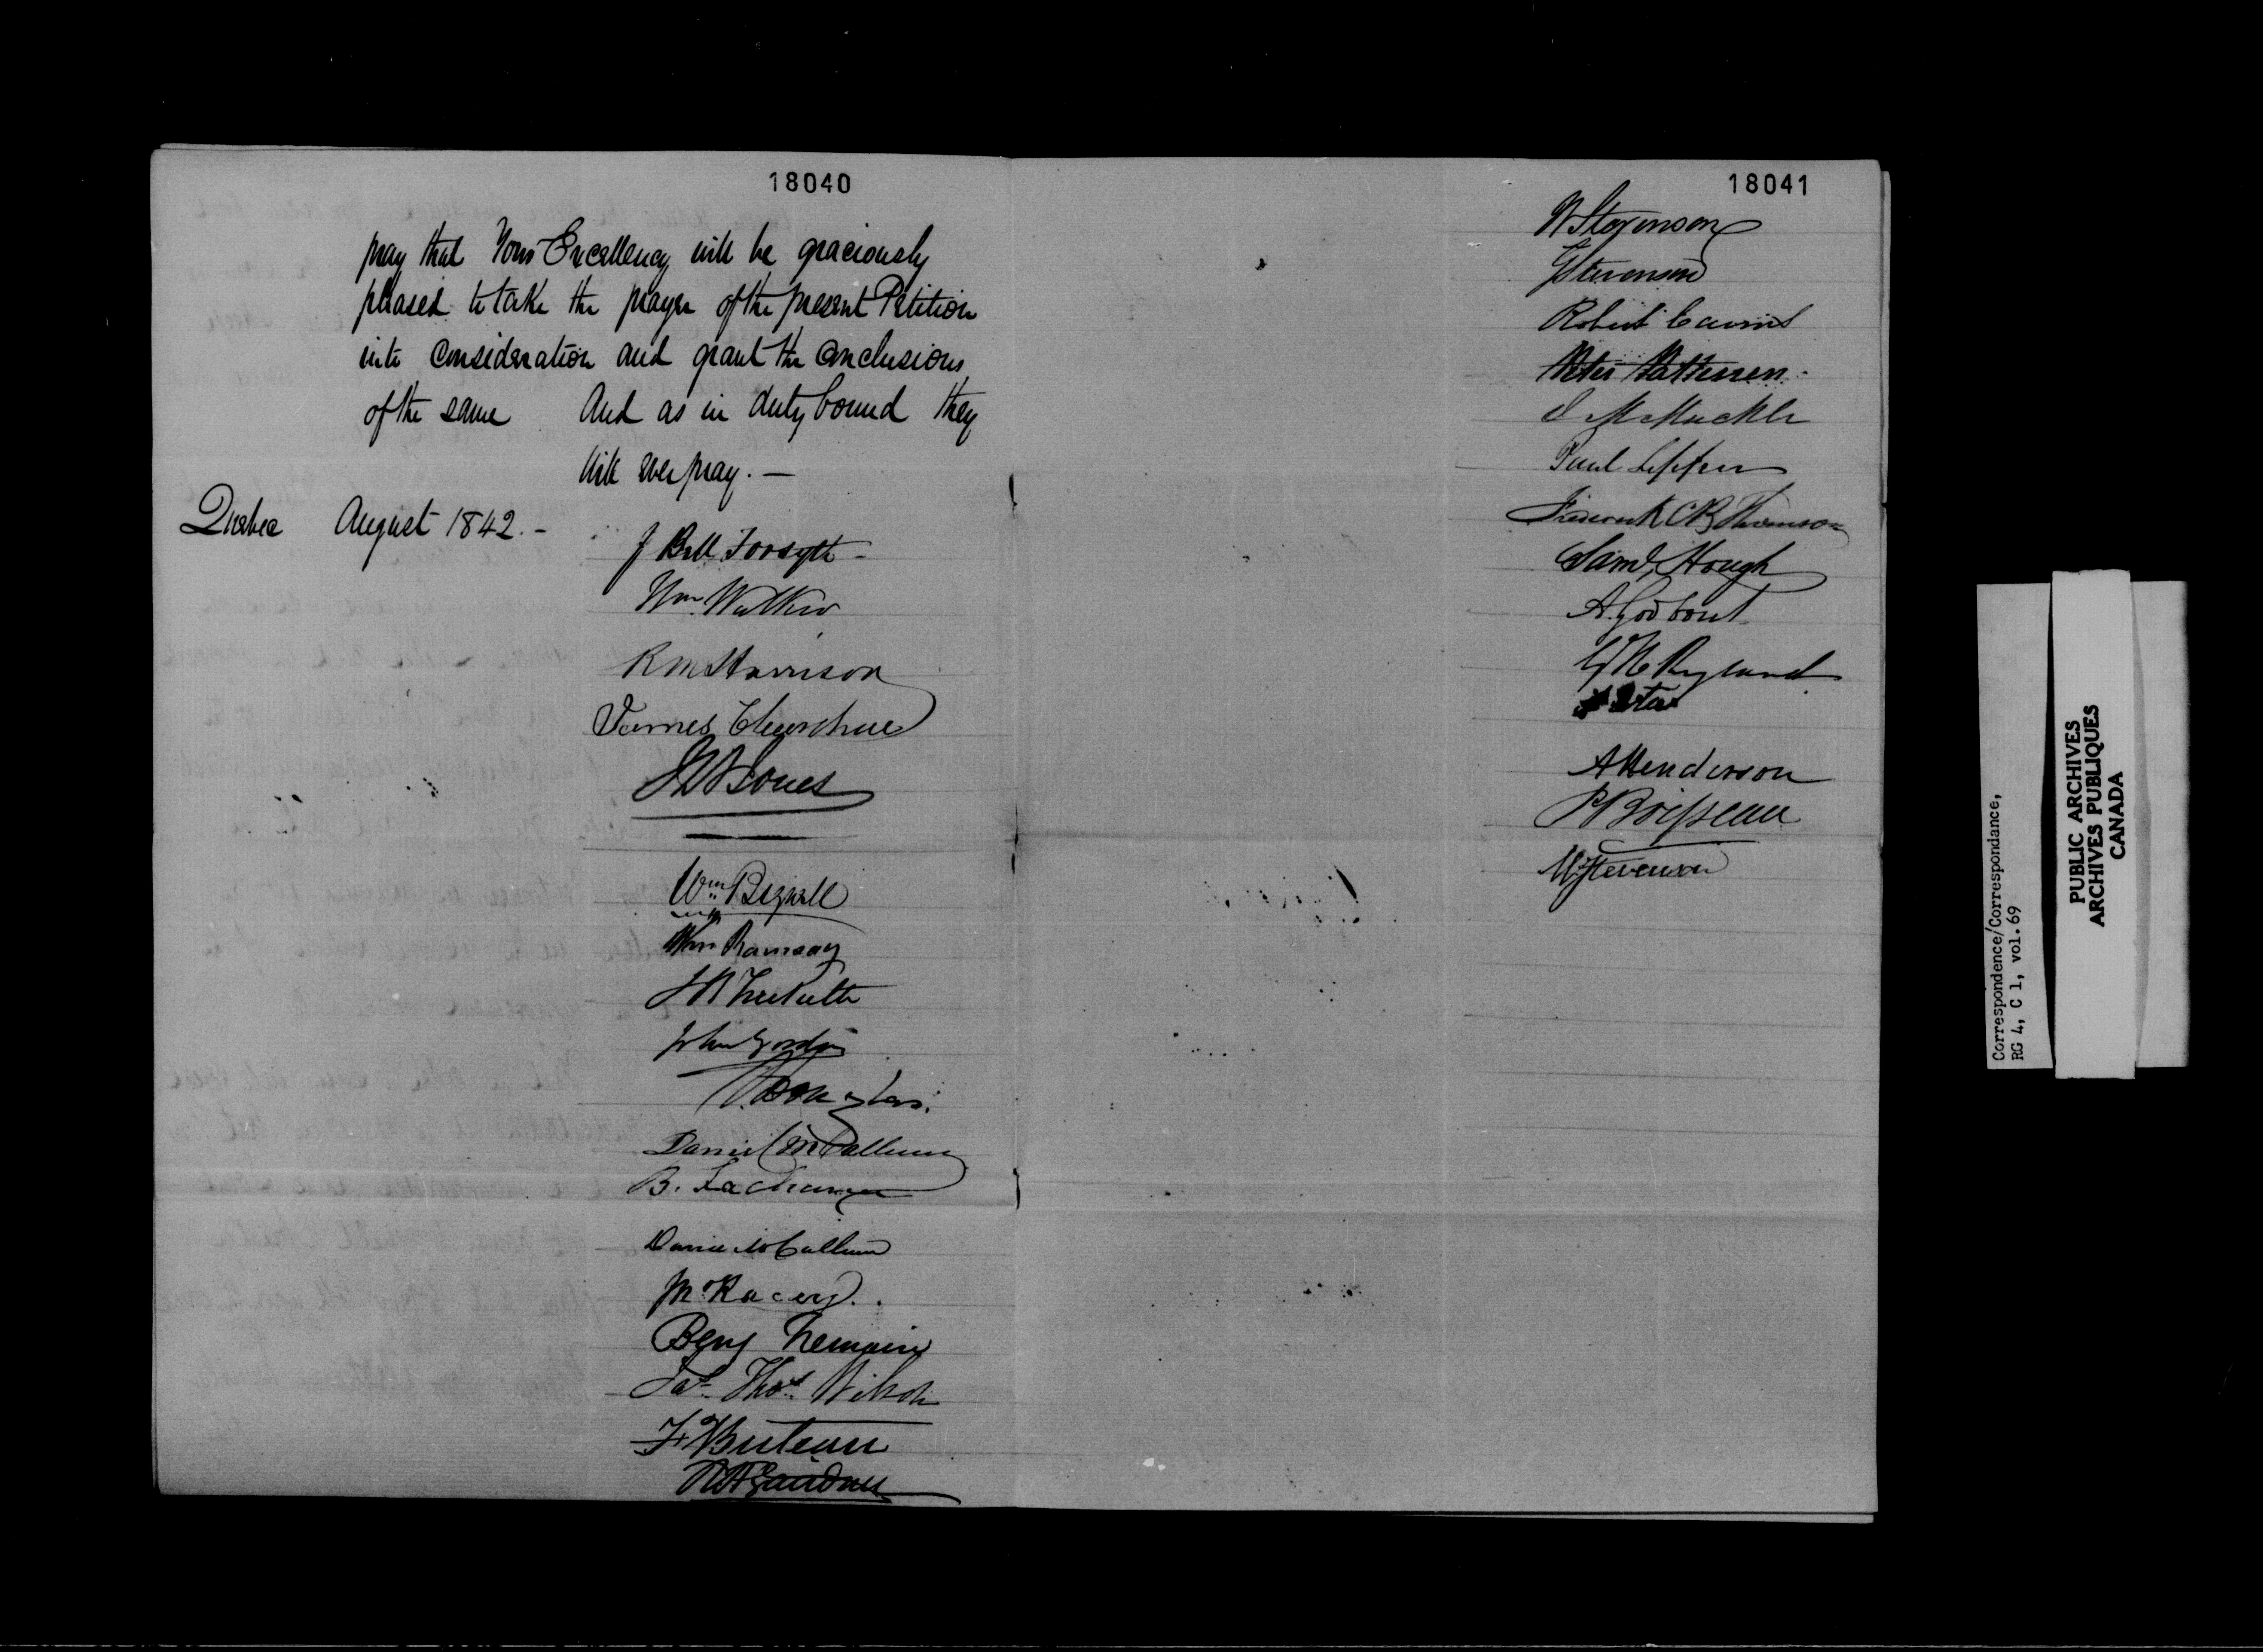 18040
pray that Your Excellency will be graciously
pleased to take the prayer of the present Petition
into consideration and grant the conclusions
of the same And as in duty bound they
will ever pray. —
Quebec August 1842. -
J Bell Forsyth -
Wm. Walker
R M Harrison
James Clearihue
Jones
Wm Bignell
Wm Ramsay
John Gordon
Douglas.
Daniel McCallum
B. Lachance
Daniel McCallum
Jno Racey.
Benj Tremain
Jas. Thos. Wilson
F Buteau
18041
N Stevenson
G Stevenson
Robert Cairns
Peter Patterson.
Paul Lepper
Frederick C B Thomson
Saml. Hough
A. Godbout
G H Ryland
A Henderson
P Boisseau
M Stevenson
Correspondence/Correspondance,
RG 4, C 1, vol. 69
PUBLIC ARCHIVES
ARCHIVES PUBLIQUES
CANADA